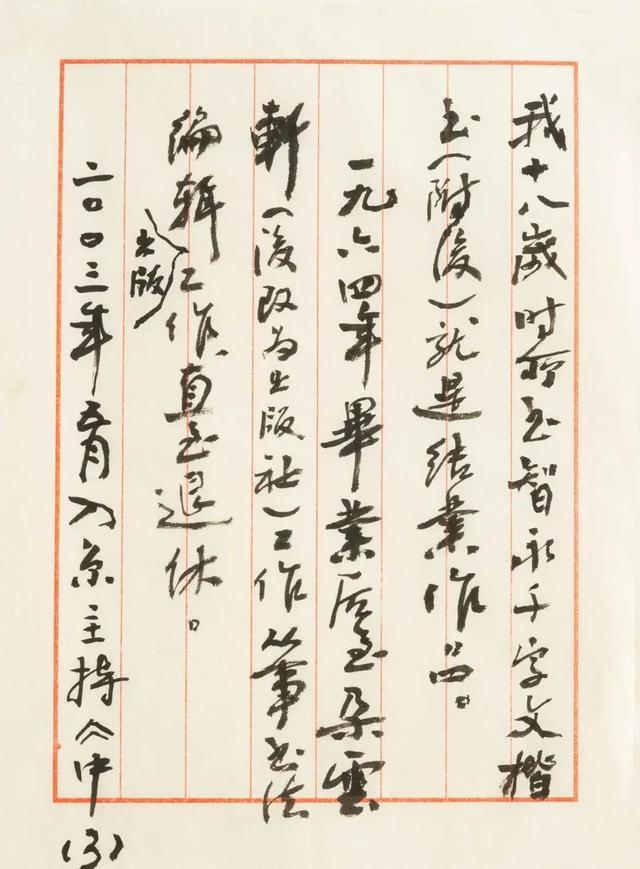 我十八歲时所书智永千字文楷
书(附後)就是结業作品。
一九六四年畢業后至朵雲
軒(後改为出版社)工作从事书法
编辑出版工作直至退休。
二〇〇三年五月入京主持《中
(3)